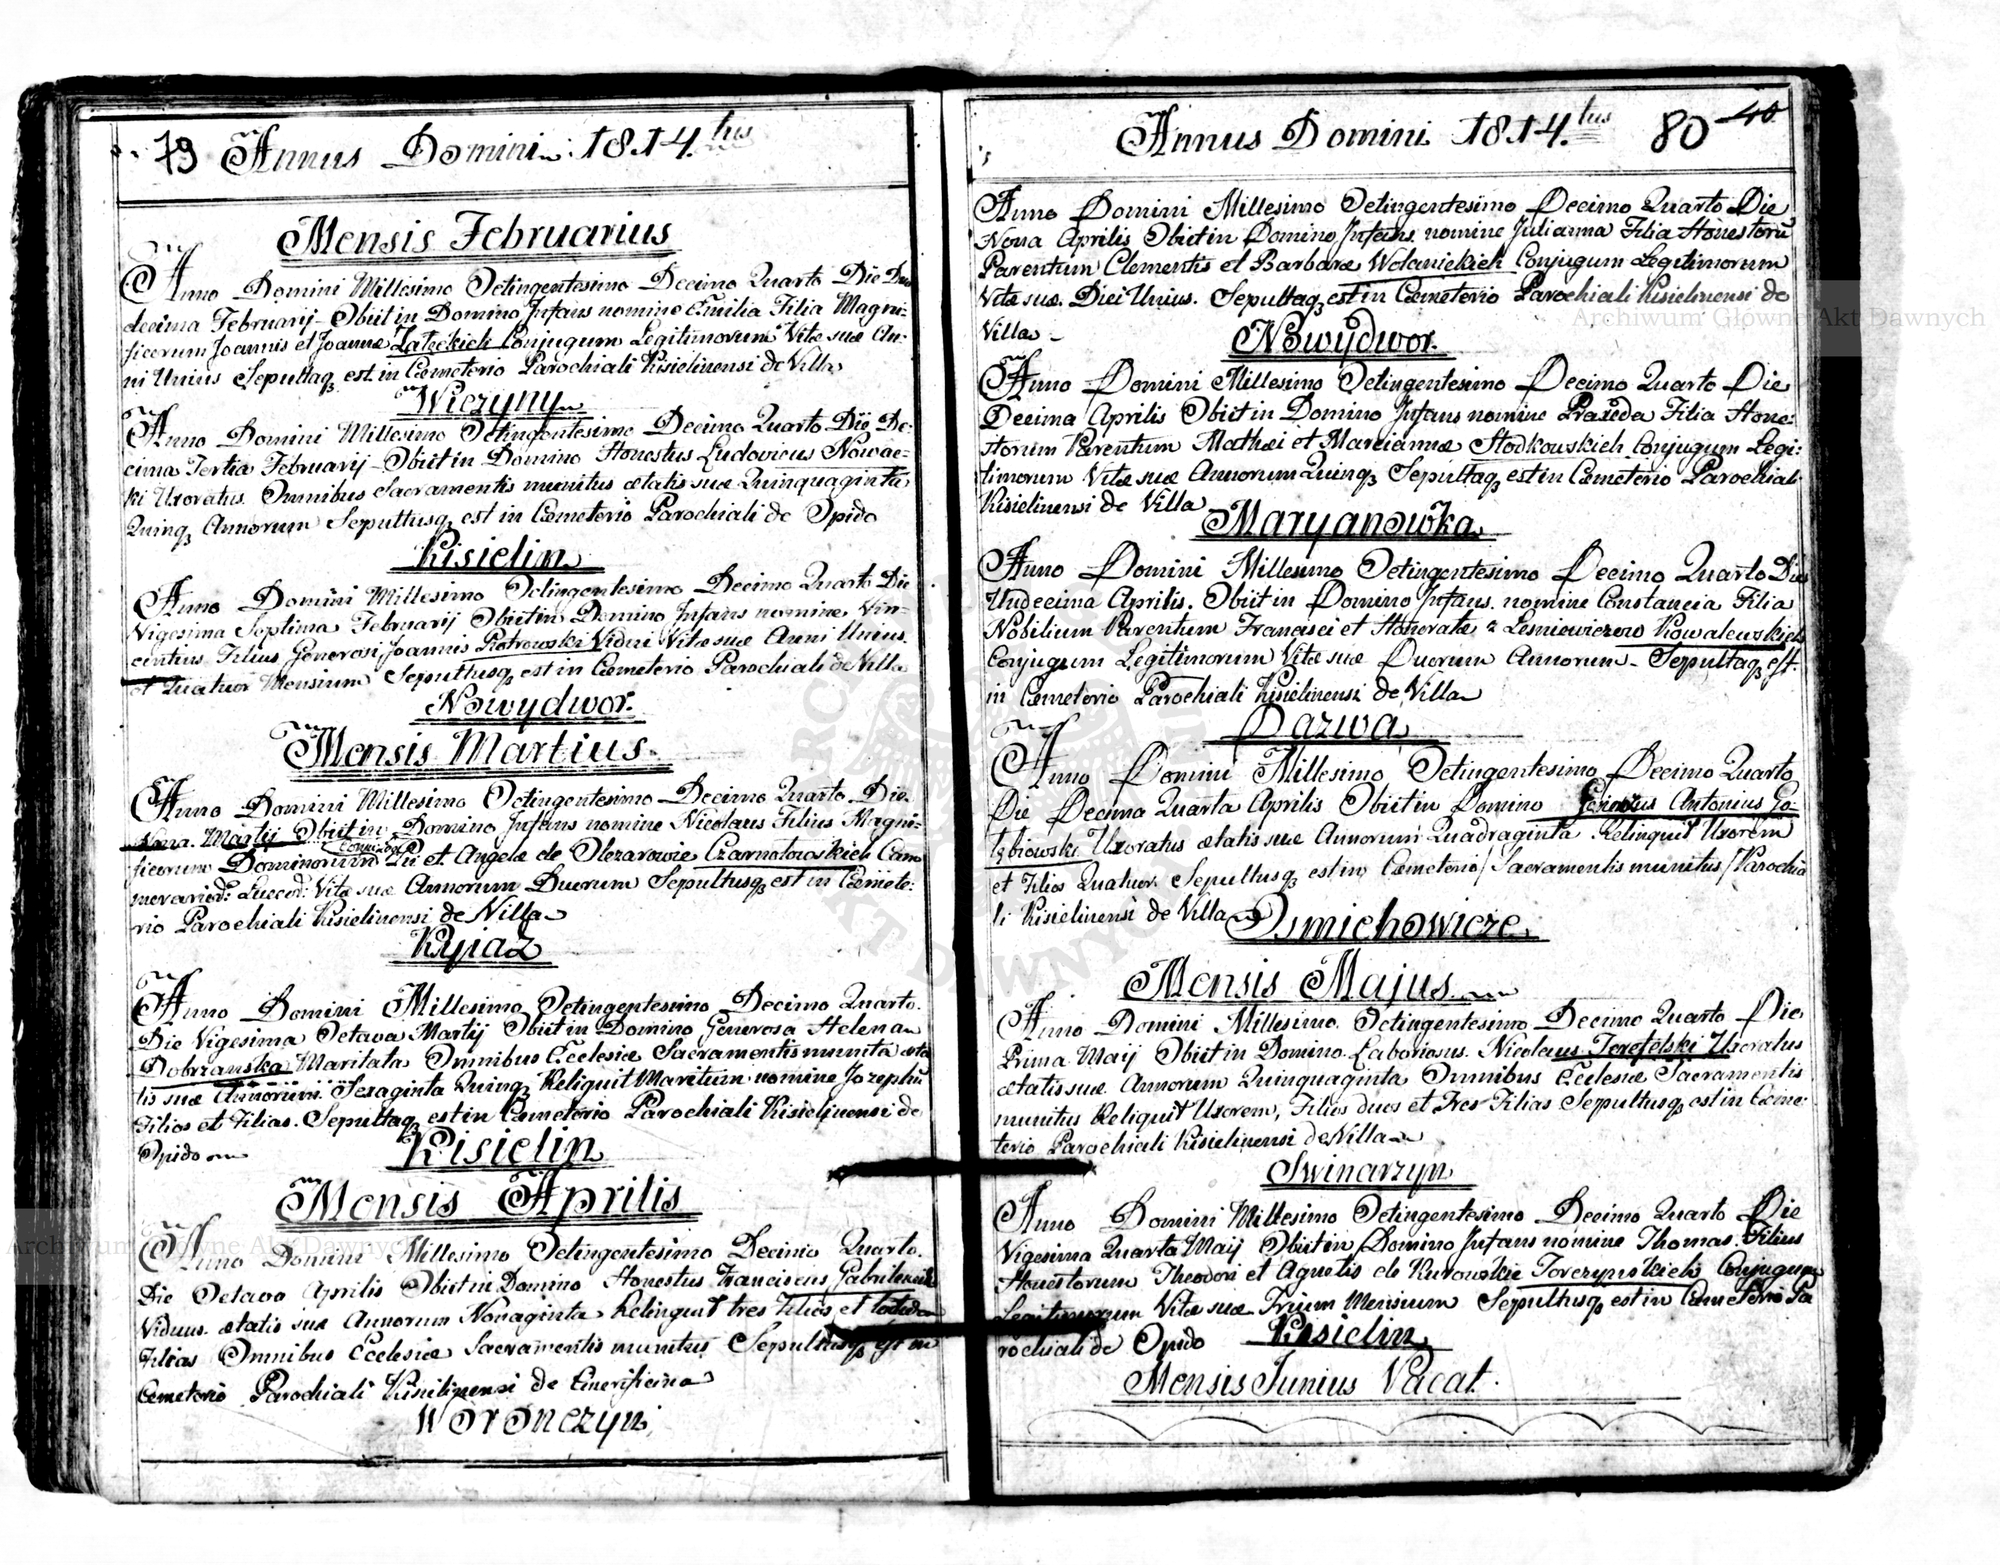 79 Annus Domini 1814.tus
Mensis Februarius
Anno Domini Millesimo Octingentesimo Decimo Quarto Die Duo
decima Februarij Obiit in Domino Infans nomine Emilia Filia Magni-
ficorum Joannis et Joannæ Conjugum Legitimorum Vitæ suæ An-
ni Unius Sepultaq3 est in Cæmeterio Parochiali Kisielinensi de Villa
Wiczyny
Anno Domini Millesimo Octingentesimo Decimo Quarto Die De-
cima Tertia Februarij Obiit in Domino Honestus Ludovicus Nowac-
ki Uxoratus Omnibus Sacramentis munitus ætatis suæ Quinquaginta
Quinq3 Annorum Sepultusq3 est in Cæmeterio Parochiali de Opido
Kisielin
Anno Domini Millesimo Octingentesimo Decimo Quarto Die
Vigesima Septima Februarij Obiit in Domino Infans nomine Vin-
centius Filius Generosi Joannis Piotrowski Vidui Vitæ suæ Anni Unius
et Quatuor Mensium Sepultusq3 est in Cæmeterio Parochiali de Villa
Nowydwor.
Mensis Martius.
Anno Domini Millesimo Octingentesimo Decimo Quarto Die
Nona Martij Obiit in Domino Infans nomine Nicolaus Filius Magni-
ficorum Dominorum Pii et Angelæ de Olezarowie Czarnołowskich Cam
merarior: Luceor: Vitæ suæ Annorum Duorum Sepultusq3 est in Cæmete-
rio Parochiali Kisielinensi de Villa
Kyiaz
Anno Domini Millesimo Octingentesimo Decimo Quarto.
Die Vigesima Octava Martij Obiit in Domino Generosa Helena
Dobrzanska Maritata Omnibus Ecclesiæ Sacramentis munita æta
tis suæ Annorum Sexaginta Quinq3 Reliquit Maritum nomine Jozephu
Filios et Filias. Sepultaq3 est in Cæmeterio Parochiali Kisielinensi de
Opido
Kisielin
Mensis Aprilis
Anno Domini Millesimo Octingentesimo Decimo Quarto.
Die Octava Aprilis Obiit in Domino Honestus Franciscus
Viduus ætatis suæ Annorum Nonaginta Relinquit tres Filios et
Filias Omnibus Ecclesiæ Sacramentis munitus Sepultusq3 est in
Cæmeterio Parochiali Kisielinensi de Cinerificina
Woronczyn
Annus Domini 1814.tus 80 40
Anno Domini Millesimo Octingentesimo Decimo Quarto Die
Nona Aprilis Obiit in Domino Infans nomine Julianna Filia Honestoru
Parentum Clementis et Barbaræ Wolanickich Conjugum Legitimorum
Vitæ suæ Diei Unius. Sepultaq3 est in Cæmeterio Parochiali Kisielinensi de
Villa
Nowydwor.
Anno Domini Millesimo Octingentesimo Decimo Quarto Die
Decima Aprilis Obiit in Domino Infans nomine Praxeda Filia Hone-
storum Parentum Mathæi et Mariannæ Słodkowskich Conjugum Legi-
timorum Vitæ suæ Annorum Quinq3 Sepultaq3 est in Cæmeterio Parochiali
Kisielinensi de Villa
Maryanowka
Anno Domini Millesimo Octingentesimo Decimo Quarto Die
Undecima Aprilis. Obiit in Domino Infans nomine Constancia Filia
Nobilium Parentum Francisci et Honoratæ z Lesniewiczow Kowalewskich
Conjugum Legitimorum Vitæ suæ Duorum Annorum Sepultaq3 est.
in Cæmeterio Parochiali Kisielinensi de Villa
Dazwa
Anno Domini Millesimo Octingentesimo Decimo Quarto
Die Decima Quarta Aprilis Obiit in Domino Antonius Go-
łębiowski Uxoratus ætatis suæ Annorum Quadraginta Relinquit Uxorem
et Filios Quatuor. Sepultusq3 est in Cæmeterio / Sacramentis munitus / Parochia
li Kisielinensi de Villa
Osmichowicze
Mensis Majus.
Anno Domini Millesimo Octingentesimo Decimo Quarto Die
Prima Maij Obiit in Domino Laboriosus Nicolaus Uxoratus
ætatis suæ Annorum Quinquaginta Omnibus Ecclesiæ Sacramentis
munitus Reliquit Uxorem, Filios duos et Tres Filias Sepultusq3 est in Cæme-
terio Parochiali Kisielinensi de Villa
Swinarzyn
Anno Domini Millesimo Octingentesimo Decimo Quarto Die
Vigesima Quarta Maij Obiit in Domino Infans nomine Thomas Filius
Honestorum Theodori et Agnetis de Kurowskie Torczynskich Conjugum
Legitimorum Vitæ suæ Trium Mensium Sepultusq3 est in Cæmeterio Pa
rochiali de Opido Kisielin
Mensis Junius Vacat.
Archiwum Główne Akt Dawnych
Archiwum Główne Akt Dawnych